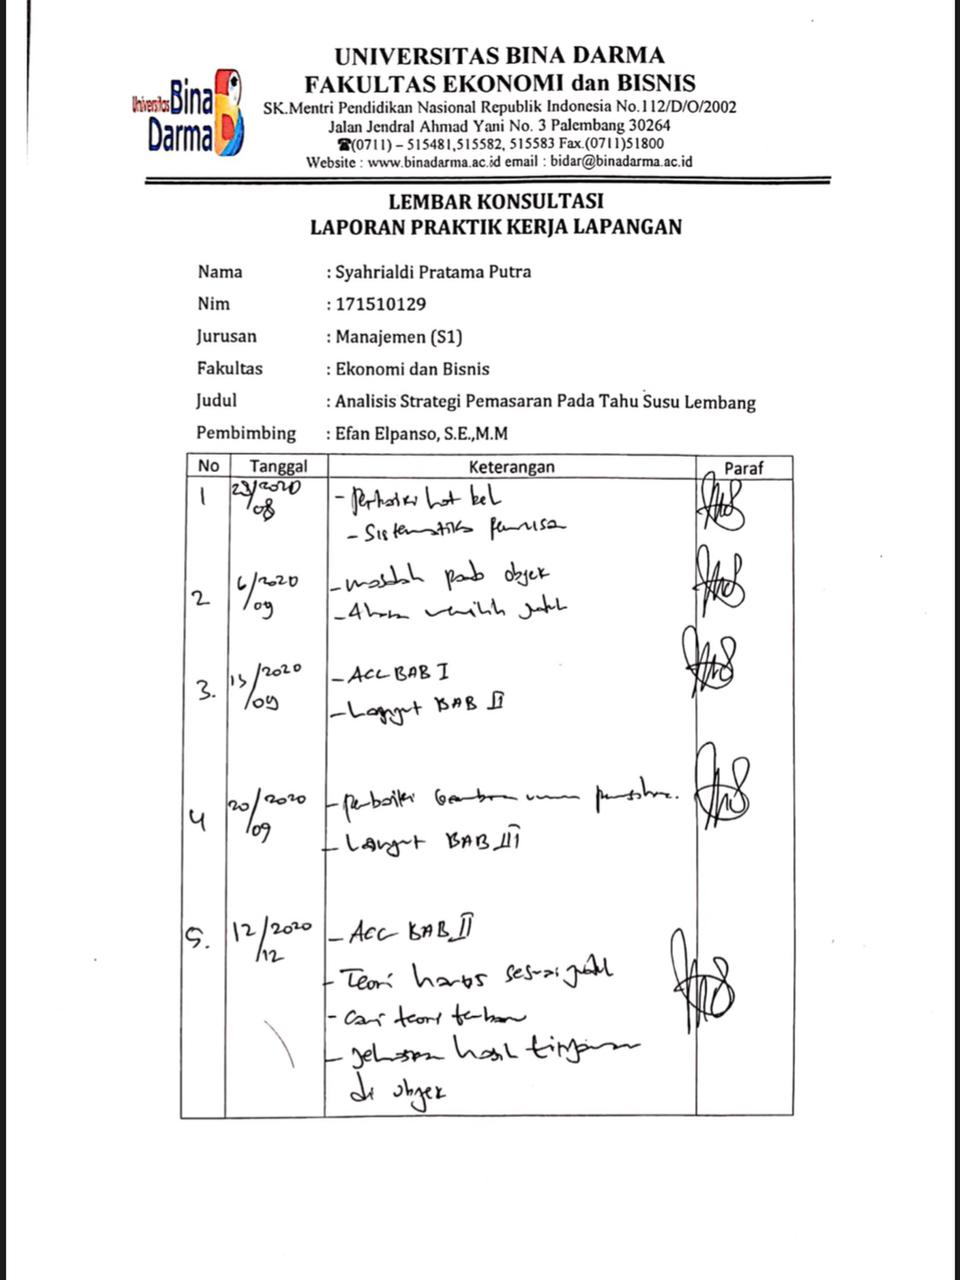 Universitas Bina
Darma
UNIVERSITAS BINA DARMA
FAKULTAS EKONOMI dan BISNIS
SK.Mentri Pendidikan Nasional Republik Indonesia No.112/D/O/2002
Jalan Jendral Ahmad Yani No. 3 Palembang 30264
☎(0711) – 515481,515582, 515583 Fax.(0711)51800
Website : www.binadarma.ac.id email : bidar@binadarma.ac.id
LEMBAR KONSULTASI
LAPORAN PRAKTIK KERJA LAPANGAN
Nama : Syahrialdi Pratama Putra
Nim : 171510129
Jurusan : Manajemen (S1)
Fakultas : Ekonomi dan Bisnis
Judul : Analisis Strategi Pemasaran Pada Tahu Susu Lembang
Pembimbing : Efan Elpanso, S.E.,M.M
No Tanggal Keterangan Paraf
1 23/2020 - Perbaiki
08 - Sistematika
2 6/2020 - masalah pada objek
/09 - memilih judul
3. 13/2020 - ACC BAB I
/09 - Lanjut BAB II
4 20/2020 - perbaiki Gambaran umum
/09 - Lanjut BAB III
5. 12/2020 - ACC BAB II
/12
- Teori harus sesuai judul
- cari teori
- jelaskan hasil tinjauan
di objek